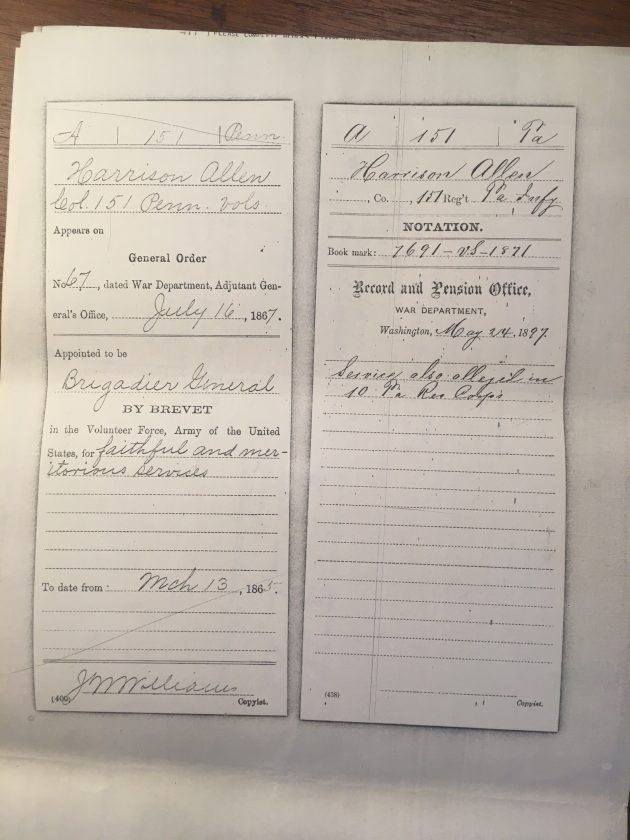 PLEASE COMPLETE
A | 151 | Penn.
Harrison Allen
Col. 151 Penn. vols.
Appears on
General Order
No. 67, dated War Department, Adjutant Gen-
eral's Office, July 16, 1867.
Appointed to be
Brigadier General
BY BREVET
in the Volunteer Force, Army of the United
States, for faithful and mer-
itorious services
To date from: Mch 13, 1865.
J W Williams
(400) Copyist.
A | 151 | Pa
Harrison Allen
, Co. , 151 Reg't Pa Infy.
NOTATION.
Book mark: 7691-VS-1871
Record and Pension Office,
WAR DEPARTMENT,
Washington, May 24, 1897.
Service also alleged in
10 Pa Res Corps
(438) Copyist.